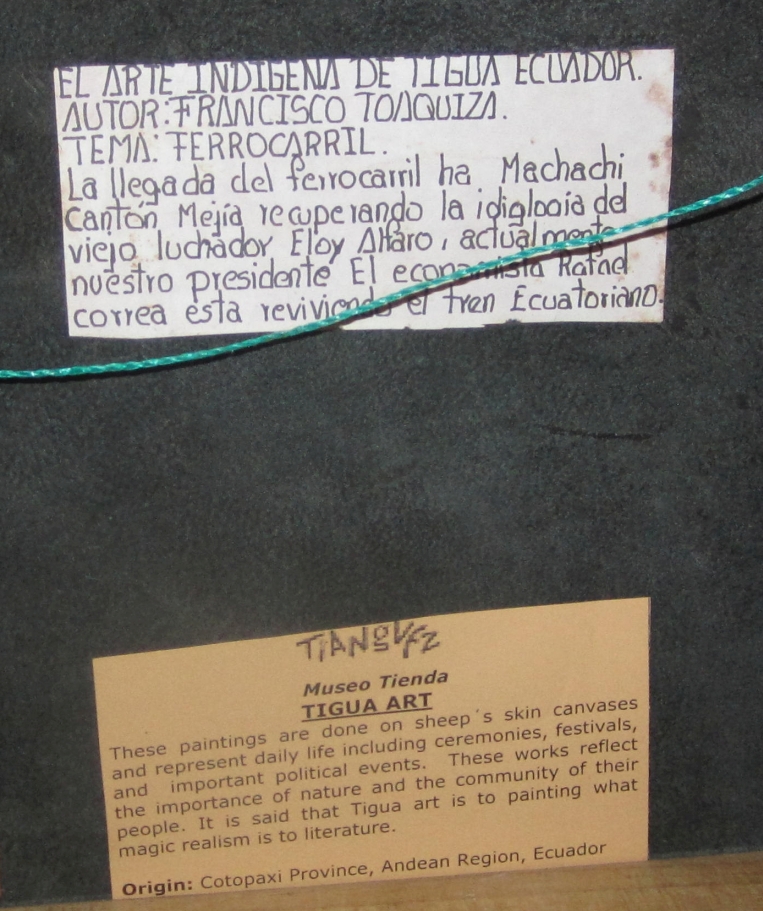 EL ARTE INDIGENA DE TIGUA ECUADOR.
AUTOR: FRANCISCO TOAQUIZA.
TEMA: FERROCARRIL.
La llegada del ferrocarril ha Machachi
Cantón Mejía recuperando la idiglogia del
viejo luchador Eloy Alfaro, actualmente
nuestro presidente El economista Rafael
correa esta reviviendo el tren Ecuatoriano.
TIANGUEZ
Museo Tienda
TIGUA ART
These paintings are done on sheep´s skin canvases
and represent daily life including ceremonies, festivals,
and important political events. These works reflect
the importance of nature and the community of their
people. It is said that Tigua art is to painting what
magic realism is to literature.
Origin: Cotopaxi Province, Andean Region, Ecuador